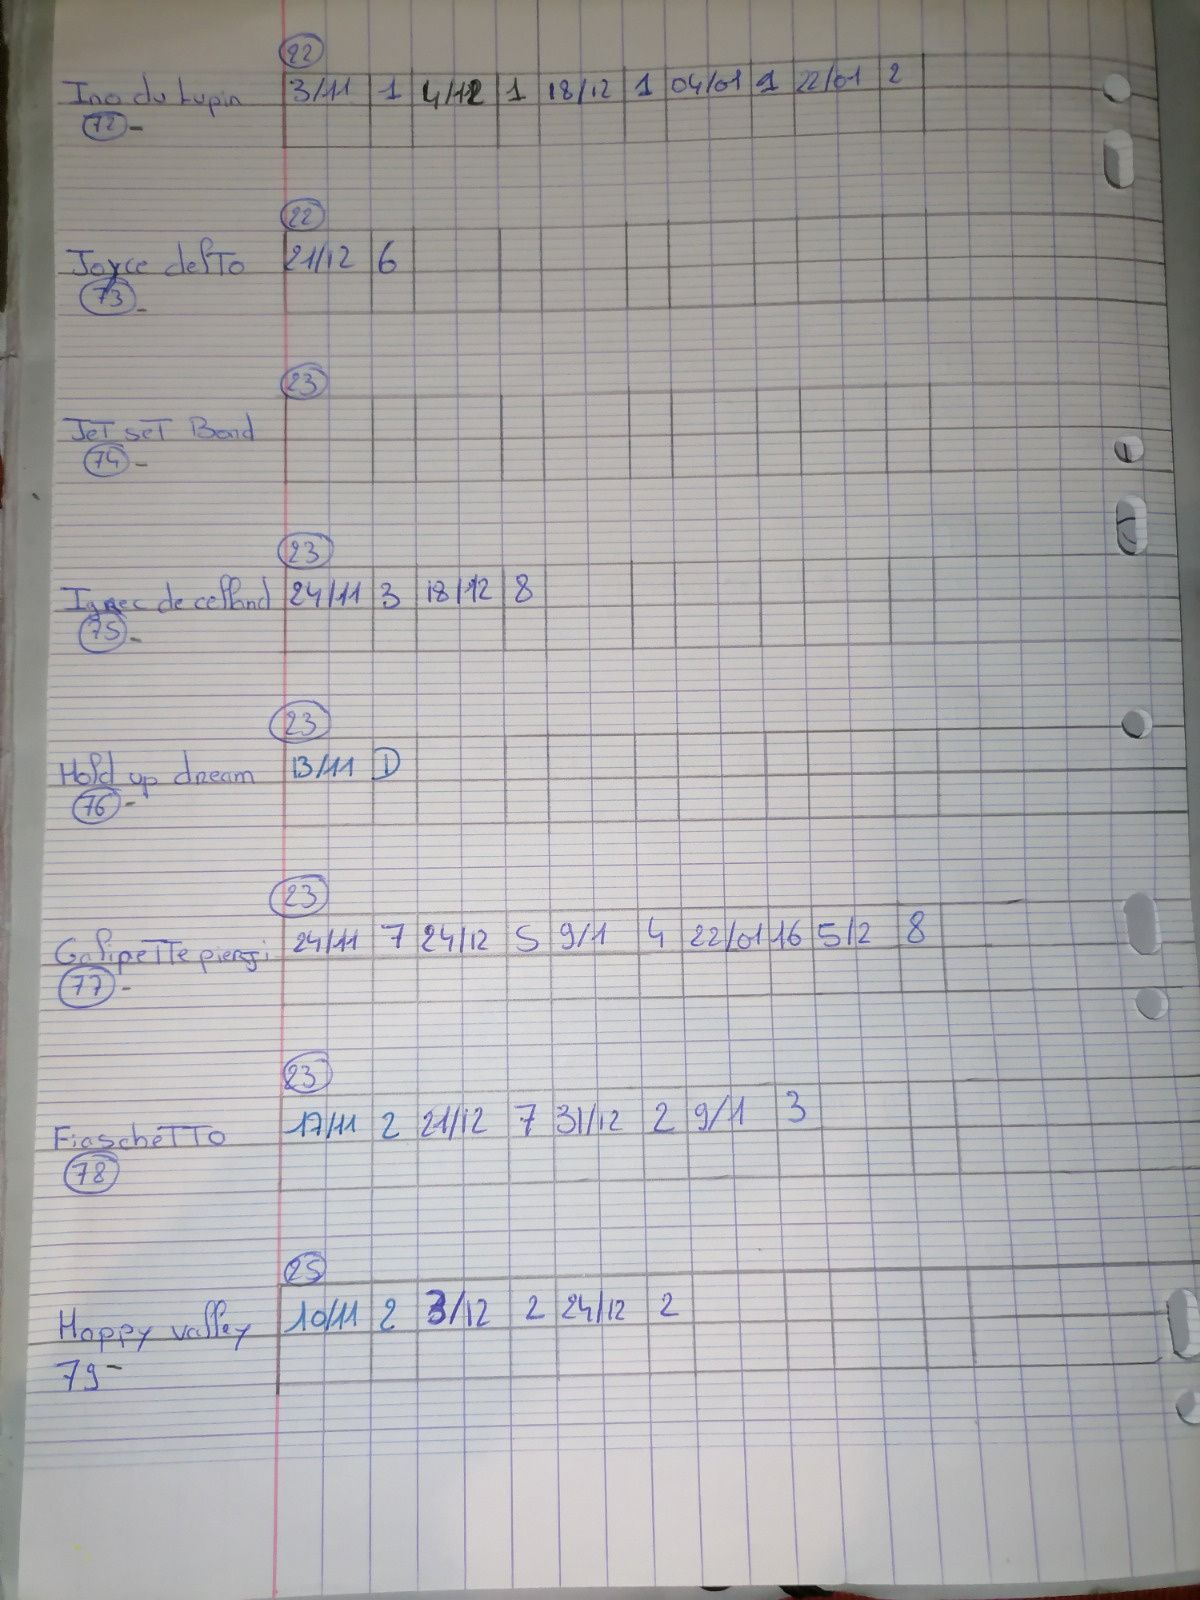 22
Ino du Lupin 3/11 1 4/12 1 18/12 1 04/01 1 22/01 2
72-
22
Joyce delTo 21/12 6
73-
23
JeT seT Bond
74-
23
de celland 24/11 3 18/12 8
75-
23
Hold up dream 13/11 D
76-
23
GalipeTTe pierji 24/11 7 24/12 5 9/1 4 22/01 16 5/2 8
77-
23
FiascheTTo 17/11 2 21/12 7 31/12 2 9/1 3
78
25
Happy valley 10/11 2 3/12 2 24/12 2
79-